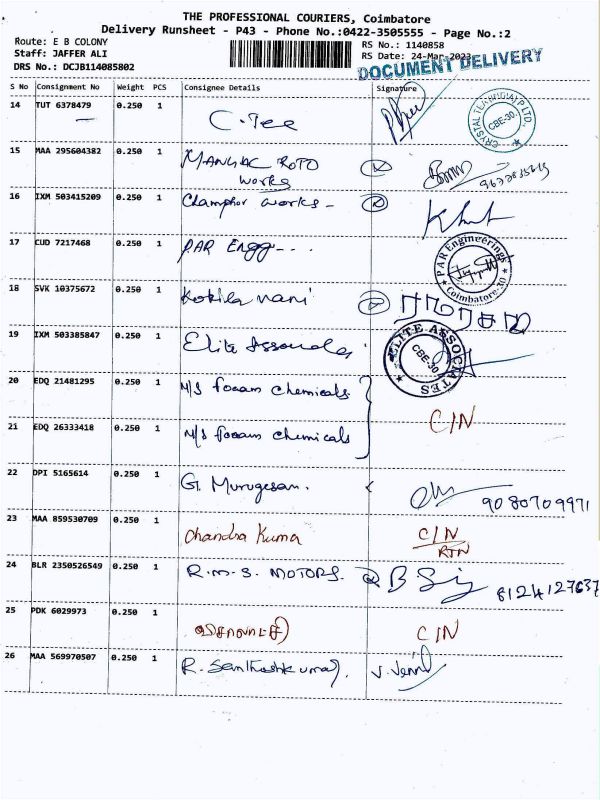 THE PROFESSIONAL COURIERS, Coimbatore
Delivery Runsheet - P43 - Phone No.:0422-3505555 - Page No.:2
Route: E B COLONY RS No.: 1140858
Staff: JAFFER ALI RS Date: 24-Mar-2023
DRS No.: DCJB114085802 DOCUMENT DELIVERY
S No Consignment No Weight PCS Consignee Details Signature
14 TUT 6378479 0.250 1 C. Tee CBE-30
15 MAA 295604382 0.250 1 ROTO
works
16 IXM 503415209 0.250 1 works
17 CUD 7217468 0.250 1 PAR Engg PAR Engineerings Coimbatore-30
18 SVK 10375672 0.250 1 Kokila mani
19 IXM 503385847 0.250 1 Elite ELITE ASSOCIATES CBE-30
20 EDQ 21481295 0.250 1 M/S chemicals
C/N
21 EDQ 26333418 0.250 1 M/S chemicals
22 DPI 5165614 0.250 1 G. Murugesan. 9080709971
23 MAA 859530709 0.250 1 Chandra Kuma C/N
RTN
24 BLR 2350526549 0.250 1 R.M.S. MOTORS. 8124127637
25 PDK 6029973 0.250 1 C/N
26 MAA 569970507 0.250 1 R. Santhoshkumar